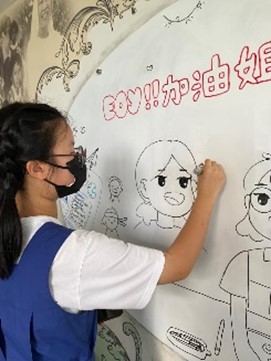 EOY!!加油姐